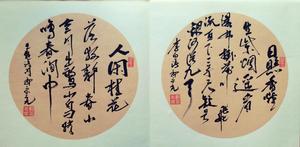 日照香炉
生紫烟遥看
瀑布挂前川飛
流直下三千尺疑是
银河落九天
李白诗
人闲桂花
落夜静春山
空月出驚山鸟时
鸣春涧中
王维诗